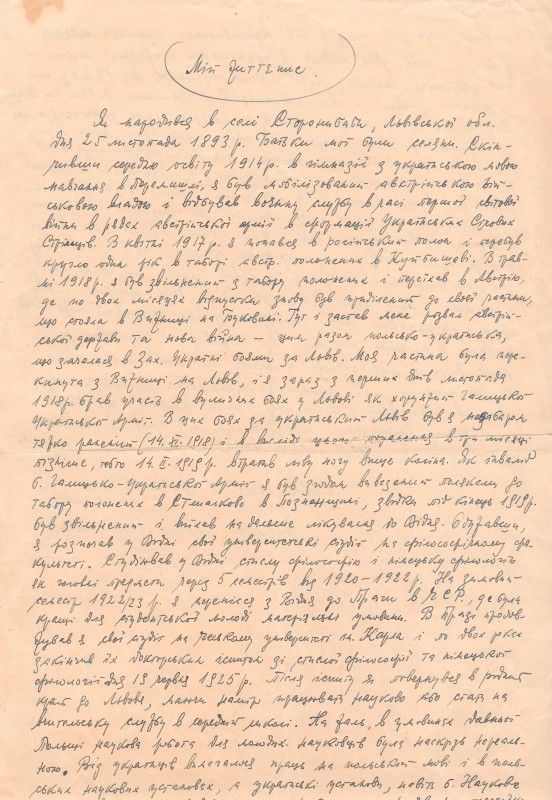 Мій життєпис.
Я народився в селі Сторонибаби, Львівської обл.
дня 25 листопада 1893 р. Батьки мої були селяни. Скін-
чивши середню освіту 1914 р. в гімназії з українською мовою
навчання в Перемишлі, я був мобілізований австрійською вій-
ськовою владою і відбував воєнну службу в часі першої світової
війни в рядах австрійської армії в формації Українських Січових
Стрільців. В квітні 1917 р. я попався в російський полон і перебув
кругло один рік в таборі австр. полонених в Куйбишеві. В трав-
ні 1918 р. я був звільнений з табору полонених і переїхав в Австрію,
де по двох місяцях відпустки знову був приділений до своєї частини,
що стояла в Вижниці на Буковині. Тут і застав мене розвал австрій-
ської держави та нова війна – цим разом польсько-українська,
що зачалася в Зах. Україні боями за Львів. Моя частина була пере-
кинута з Вижниці на Львів, і я зараз з перших днів листопада
1918 р. брав участь в вуличних боях у Львові як хорунжий Галицької
Української Армії. В цих боях за український Львів був я
тяжко ранений (14.XI.1918) і в висліді цього поранення в три місяці
пізніше, тобто 14.II.1919 р. втратив ліву ногу вище коліна. Як інвалід
б. Галицько-Української Армії я був вивезений поляками до
табору полонених в Стшалково в Познанщині, звідки під кінець 1919 р.
був звільнений і виїхав на дальше лікування до Відня. Одужавши,
я розпочав у Відні свої університетські студії на філософічному фа-
культеті. Студіював у Відні філософію і німецьку філологію
як головні предмети через 5 семестрів від 1920–1922 р. На зимовий
семестр 1922/23 р. я перенісся з Відня до Праги в Ч.С.Р., де були
кращі для студентської молоді матеріяльні умовини. В Празі продов-
жував я свої студії на Чеському університеті ім. Карла і по двох роках
закінчив їх докторським іспитом зі філософії та німецької
філології дня 19 червня 1925 р. Після іспиту я повернувся в рідний
край до Львова, маючи намір працювати науково або стати на
вчительську службу в середній школі. На жаль, в умовинах давньої
Польщі наукова робота для молодих науковців була наскрізь нереаль-
ною. Від українців вимагалася праця на польській мові і в поль-
ських наукових установах, а українські установи, навіть б. Наукове